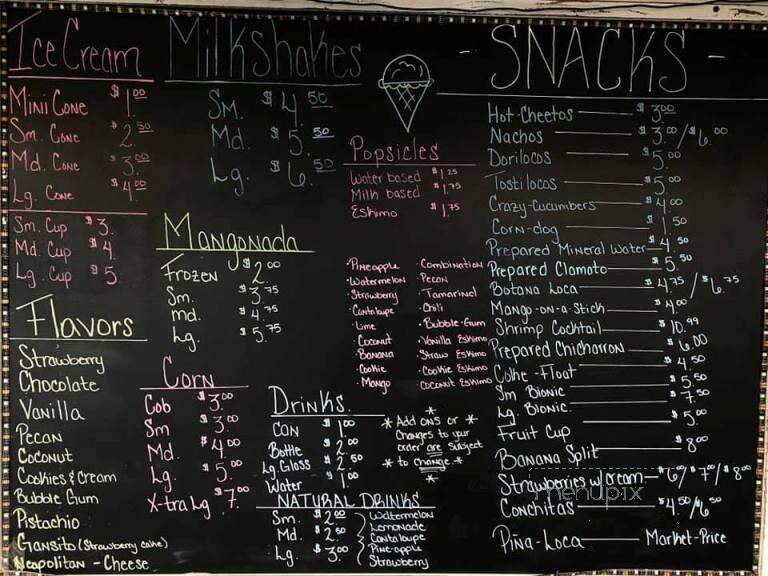 Ice Cream
Mini Cone $1.00
Sm. Cone $2.50
Md. Cone $3.00
Lg. Cone $4.00
Sm. Cup $3.
Md. Cup $4.
Lg. Cup $5.
Flavors
Strawberry
Chocolate
Vanilla
Pecan
Coconut
Cookies & Cream
Bubble Gum
Pistachio
Gansito (Strawberry cake)
Neopolitan - Cheese
Milkshakes
Sm. $4.50
Md. $5.50
Lg. $6.50
Mangonada
Frozen $2.00
Sm. $3.75
md. $4.75
Lg. $5.75
Corn
Cob $3.00
Sm $3.00
Md. $4.00
Lg. $5.00
X-tra Lg $7.00
Popsicles
Water based $1.25
Milk based $1.75
Eskimo $1.75
·Pineapple
·Watermelon
·Strawberry
·Cantalupe
·Lime
·Coconut
·Banana
·Cookie
·Mango
·Combination
·Pecan
·Tamarind
·Chili
·Bubble-Gum
·Vanilla Eskimo
·Straw Eskimo
·Cookie Eskimo
·Coconut Eskimo
Drinks
Can $1.00
Bottle $2.00
Lg. Glass $2.50
Water $1.00
* Add ons or *
Changes to your
order are subject
* to change *
Natural Drinks
Sm. $2.00
Md. $2.50
Lg. $3.00
Watermelon
Lemonade
Cantaloupe
Pine-apple
Strawberry
- SNACKS -
Hot-Cheetos $3.00
Nachos $3.00/$6.00
Dorilocos $5.00
Tostilocos $5.00
Crazy-Cucumbers $4.00
Corn-dog $1.50
Prepared Mineral Water $4.50
Prepared Clamato $5.50
Botana Loca $4.75/$6.75
Mango-on-a-Stick $4.00
Shrimp Cocktail $10.99
Prepared Chicharron $6.00
Coke-Float $4.50
Sm Bionic $5.50
Lg. Bionic $7.50
Fruit Cup $5.00
Banana Split $8.00
Strawberries w/cream $6.00/$7.00/$8.00
Conchitas $4.50/6.50
Piña-Loca Market-Price
menupix